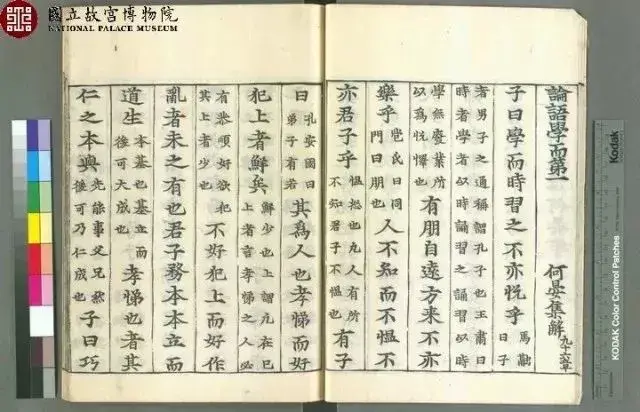 國立故宮博物院
NATIONAL PALACE MUSEUM
論語學而第一 何晏集解 凡十六章
子曰學而時習之不亦悅乎 馬融曰子
者男子之通稱謂孔子也王肅曰時者學者以時誦習之誦習以時
學無廢業所以為悅懌也 有朋自遠方來不亦
樂乎 苞氏曰同門曰朋也 人不知而不慍不
亦君子乎 慍怒也凡人有所不知君子不慍也 有子
曰 孔安國曰弟子有若 其為人也孝悌而好
犯上者鮮矣 鮮少也上謂凡在己上者言孝悌之人必
有恭順好欲犯其上者少也 不好犯上而好作
亂者未之有也君子務本本立而
道生 本基也基立而後可大成也 孝悌也者其
仁之本與 先能事父兄然後可乃仁成也 子曰巧
Kodak
KODAK Color Control Patches